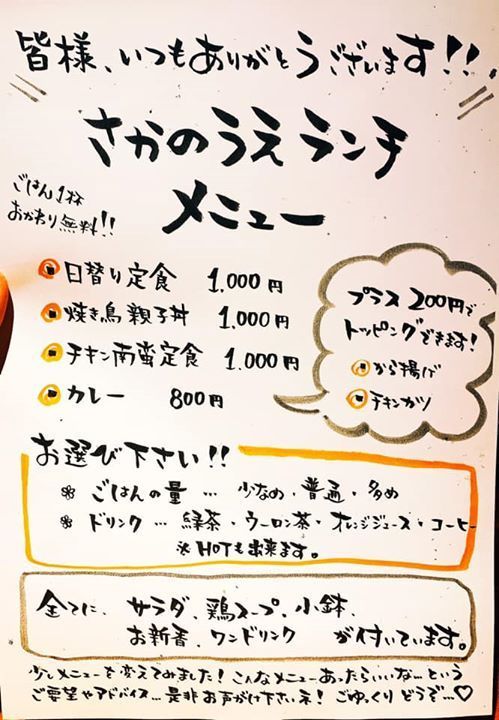 皆様、いつもありがとうございます!!
さかのうえランチ
メニュー
ごはん1杯
おかわり無料!!
日替り定食 1,000円
焼き鳥親子丼 1,000円
チキン南蛮定食 1,000円
カレー 800円
プラス200円で
トッピングできます!
から揚げ
チキンカツ
お選び下さい!!
ごはんの量…少なめ・普通・多め
ドリンク…緑茶・ウーロン茶・オレンジジュース・コーヒー
※HOTも出来ます。
全てに、サラダ、鶏スープ、小鉢、
お新香、ワンドリンク が付いています。
少しメニューを変えてみました!こんなメニューあったらいいな…という
ご要望やアドバイス…是非お声がけ下さいネ!ごゆっくりどうぞ…♡